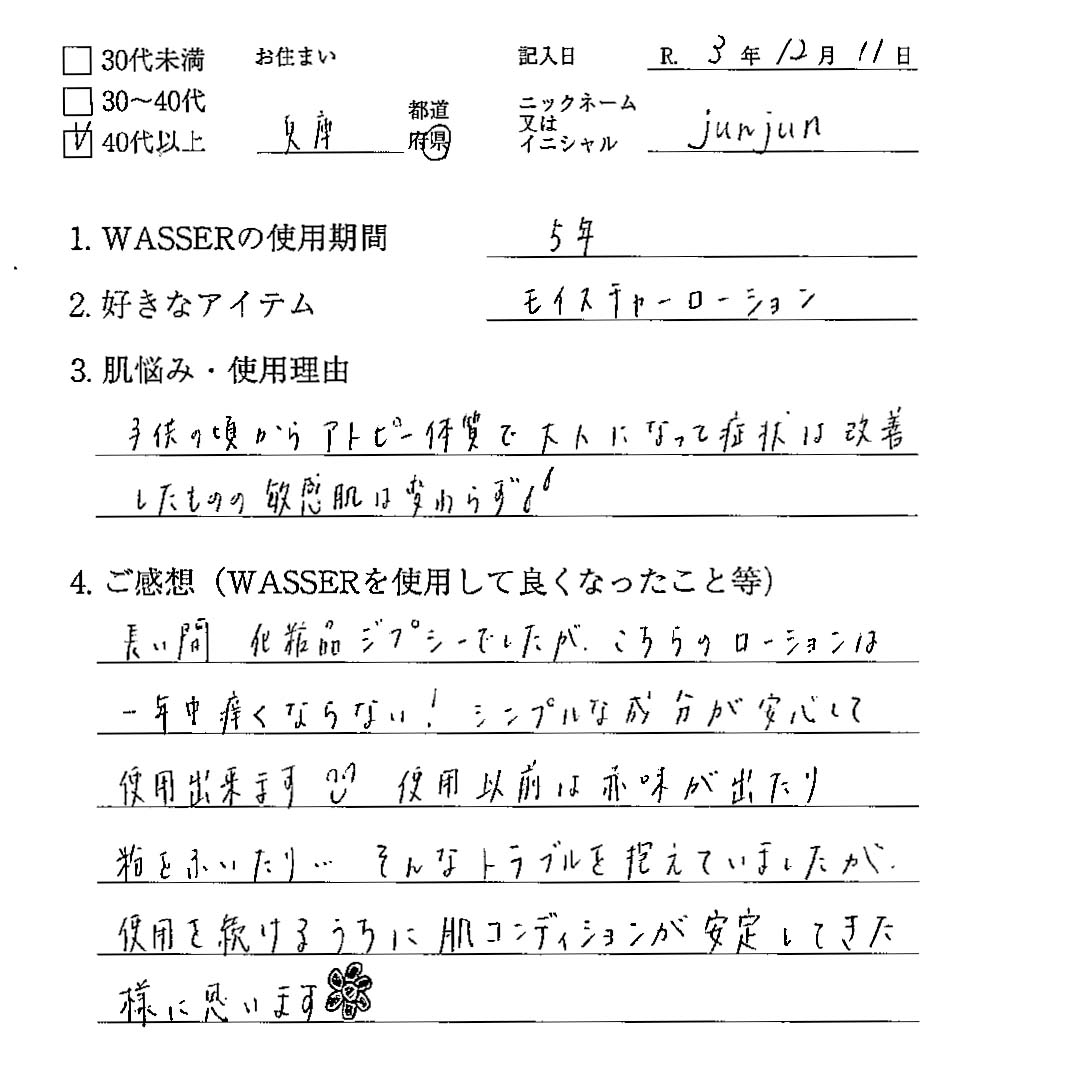 □ 30代未満 お住まい 記入日 R. 3年12月11日
□ 30〜40代 兵庫 都道府県 ニックネーム又はイニシャル junjun
☑ 40代以上
1. WASSERの使用期間 5年
2. 好きなアイテム モイスチャーローション
3. 肌悩み・使用理由
子供の頃からアトピー体質で大人になって症状は改善
したものの敏感肌は変わらず
4. ご感想（WASSERを使用して良くなったこと等）
長い間 化粧品ジプシーでしたが、こちらのローションは
一年中痒くならない! シンプルな成分が安心して
使用出来ます 使用以前は赤味が出たり
粉をふいたり… そんなトラブルを抱えていましたが、
使用を続けるうちに肌コンディションが安定してきた
様に思います